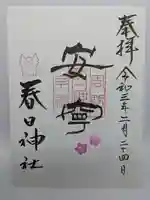 奉拝
令和三年二月二十四日
安寧
春日神社